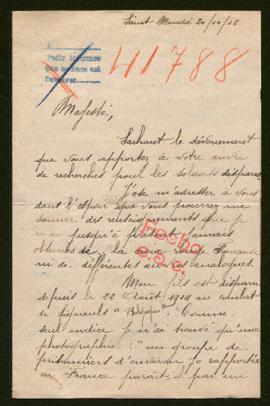 Saint Mandé 20/10/15
Pedir informes
41788
Majesté,
Sachant le dévouement
que vous apportez à votre œuvre
de recherches pour les soldats disparus
J'ose m'adresser à vous
dans l'espoir que vous pourrez me
donner des renseignements que je
n'ai jusqu'à présent jamais
obtenus de la croix rouge
ni de différentes œuvres analogues.
Hecho
Mon fils est disparu
depuis le 22 Août 1914 au combat
Comme
seul indice je n'ai trouvé qu'une
photographie: "un groupe de
prisonniers
en France paraît-il par un